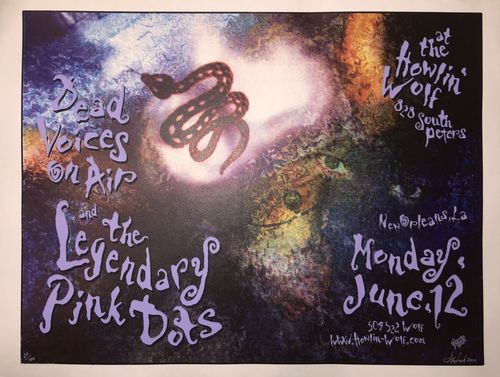 Dead
Voices
on Air
and
the
Legendary
Pink Dots
at
the
Howlin'
Wolf
828
South
Peters
New Orleans, La
Monday,
June, 12
504 522 Wolf
www.Howlin-Wolf.com